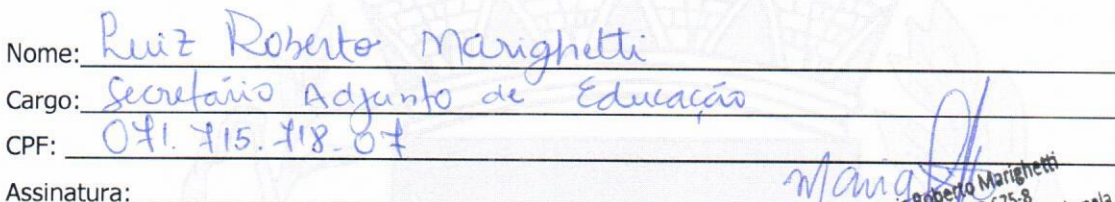 Nome: Luiz Roberto Marighetti
Cargo: Secretário Adjunto de Educação
CPF: 071.715.718-07
Assinatura: Marig
Roberto Marighetti
675-8